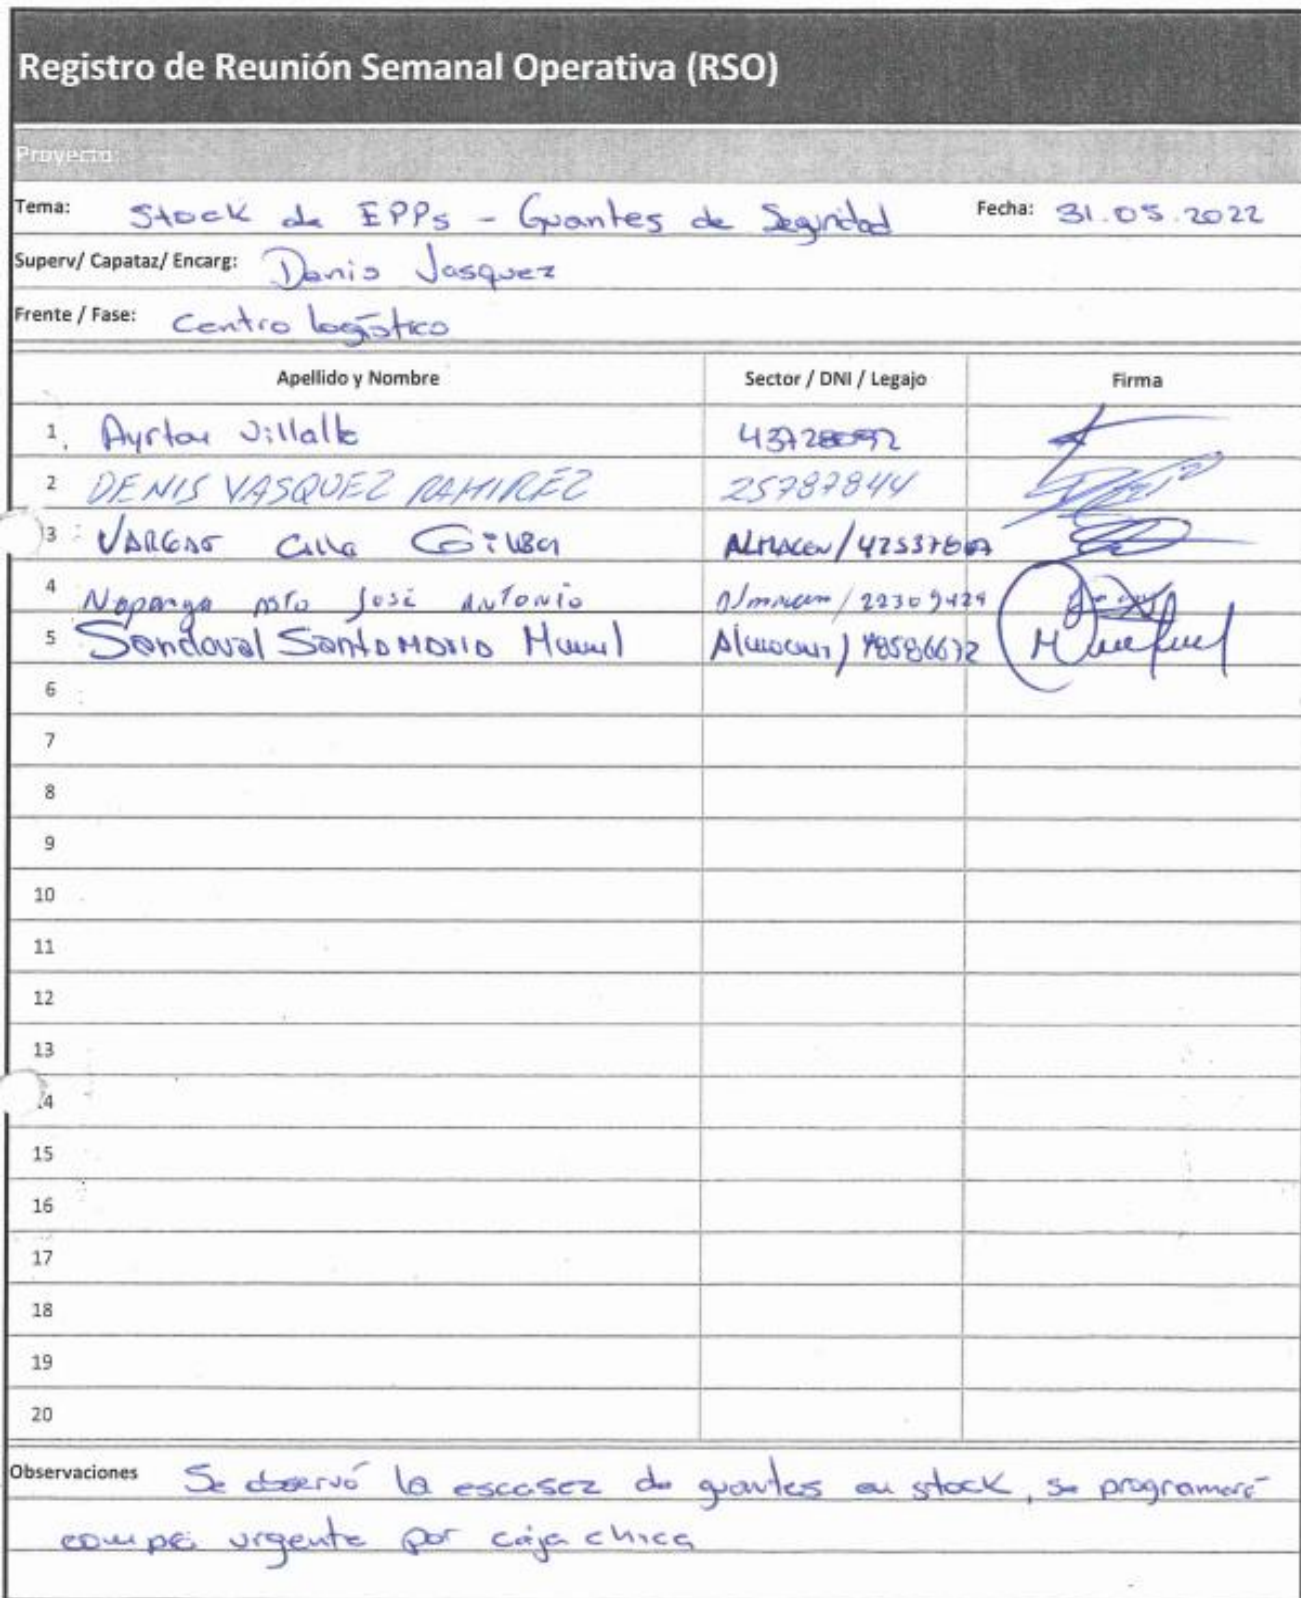 Registro de Reunión Semanal Operativa (RSO)
Proyecto:
Tema: Stock de EPPs - Guantes de Seguridad Fecha: 31.05.2022
Superv/ Capataz/ Encarg: Denis Vasquez
Frente / Fase: Centro logístico
Apellido y Nombre Sector / DNI / Legajo Firma
1 Ayrton Villalta
2 DENIS VASQUEZ RAMIREZ 25787844
3 VARGAS Calla ALMACEN /
4 José Antonio Almacen / 22309429
5 Sandoval Santamaria Manuel Almacen / 48586672
6
7
8
9
10
11
12
13
14
15
16
17
18
19
20
Observaciones Se observó la escasez de guantes en stock, se programará
compra urgente por caja chica